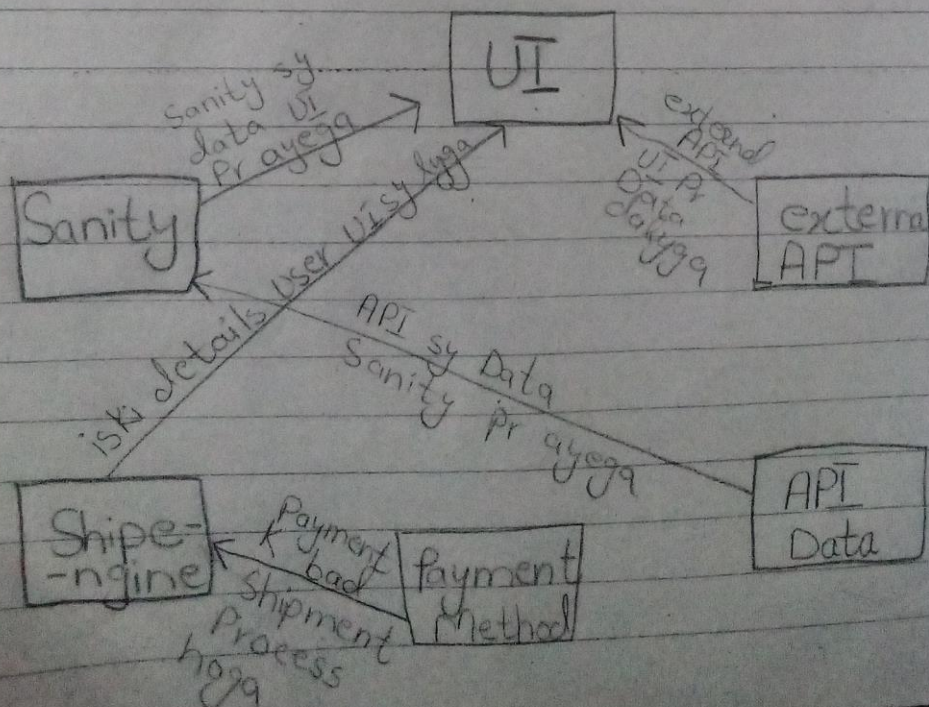 UI
Sanity sy
data UI
Pr ayega
external
API
UI pr
Data
Sanity
external
API
iski details user UI sy lyga
API sy Data
Sanity pr ayega
Shipe-
-ngine
Payment
k bad
Shipment
Process
hoga
Payment
Method
API
Data